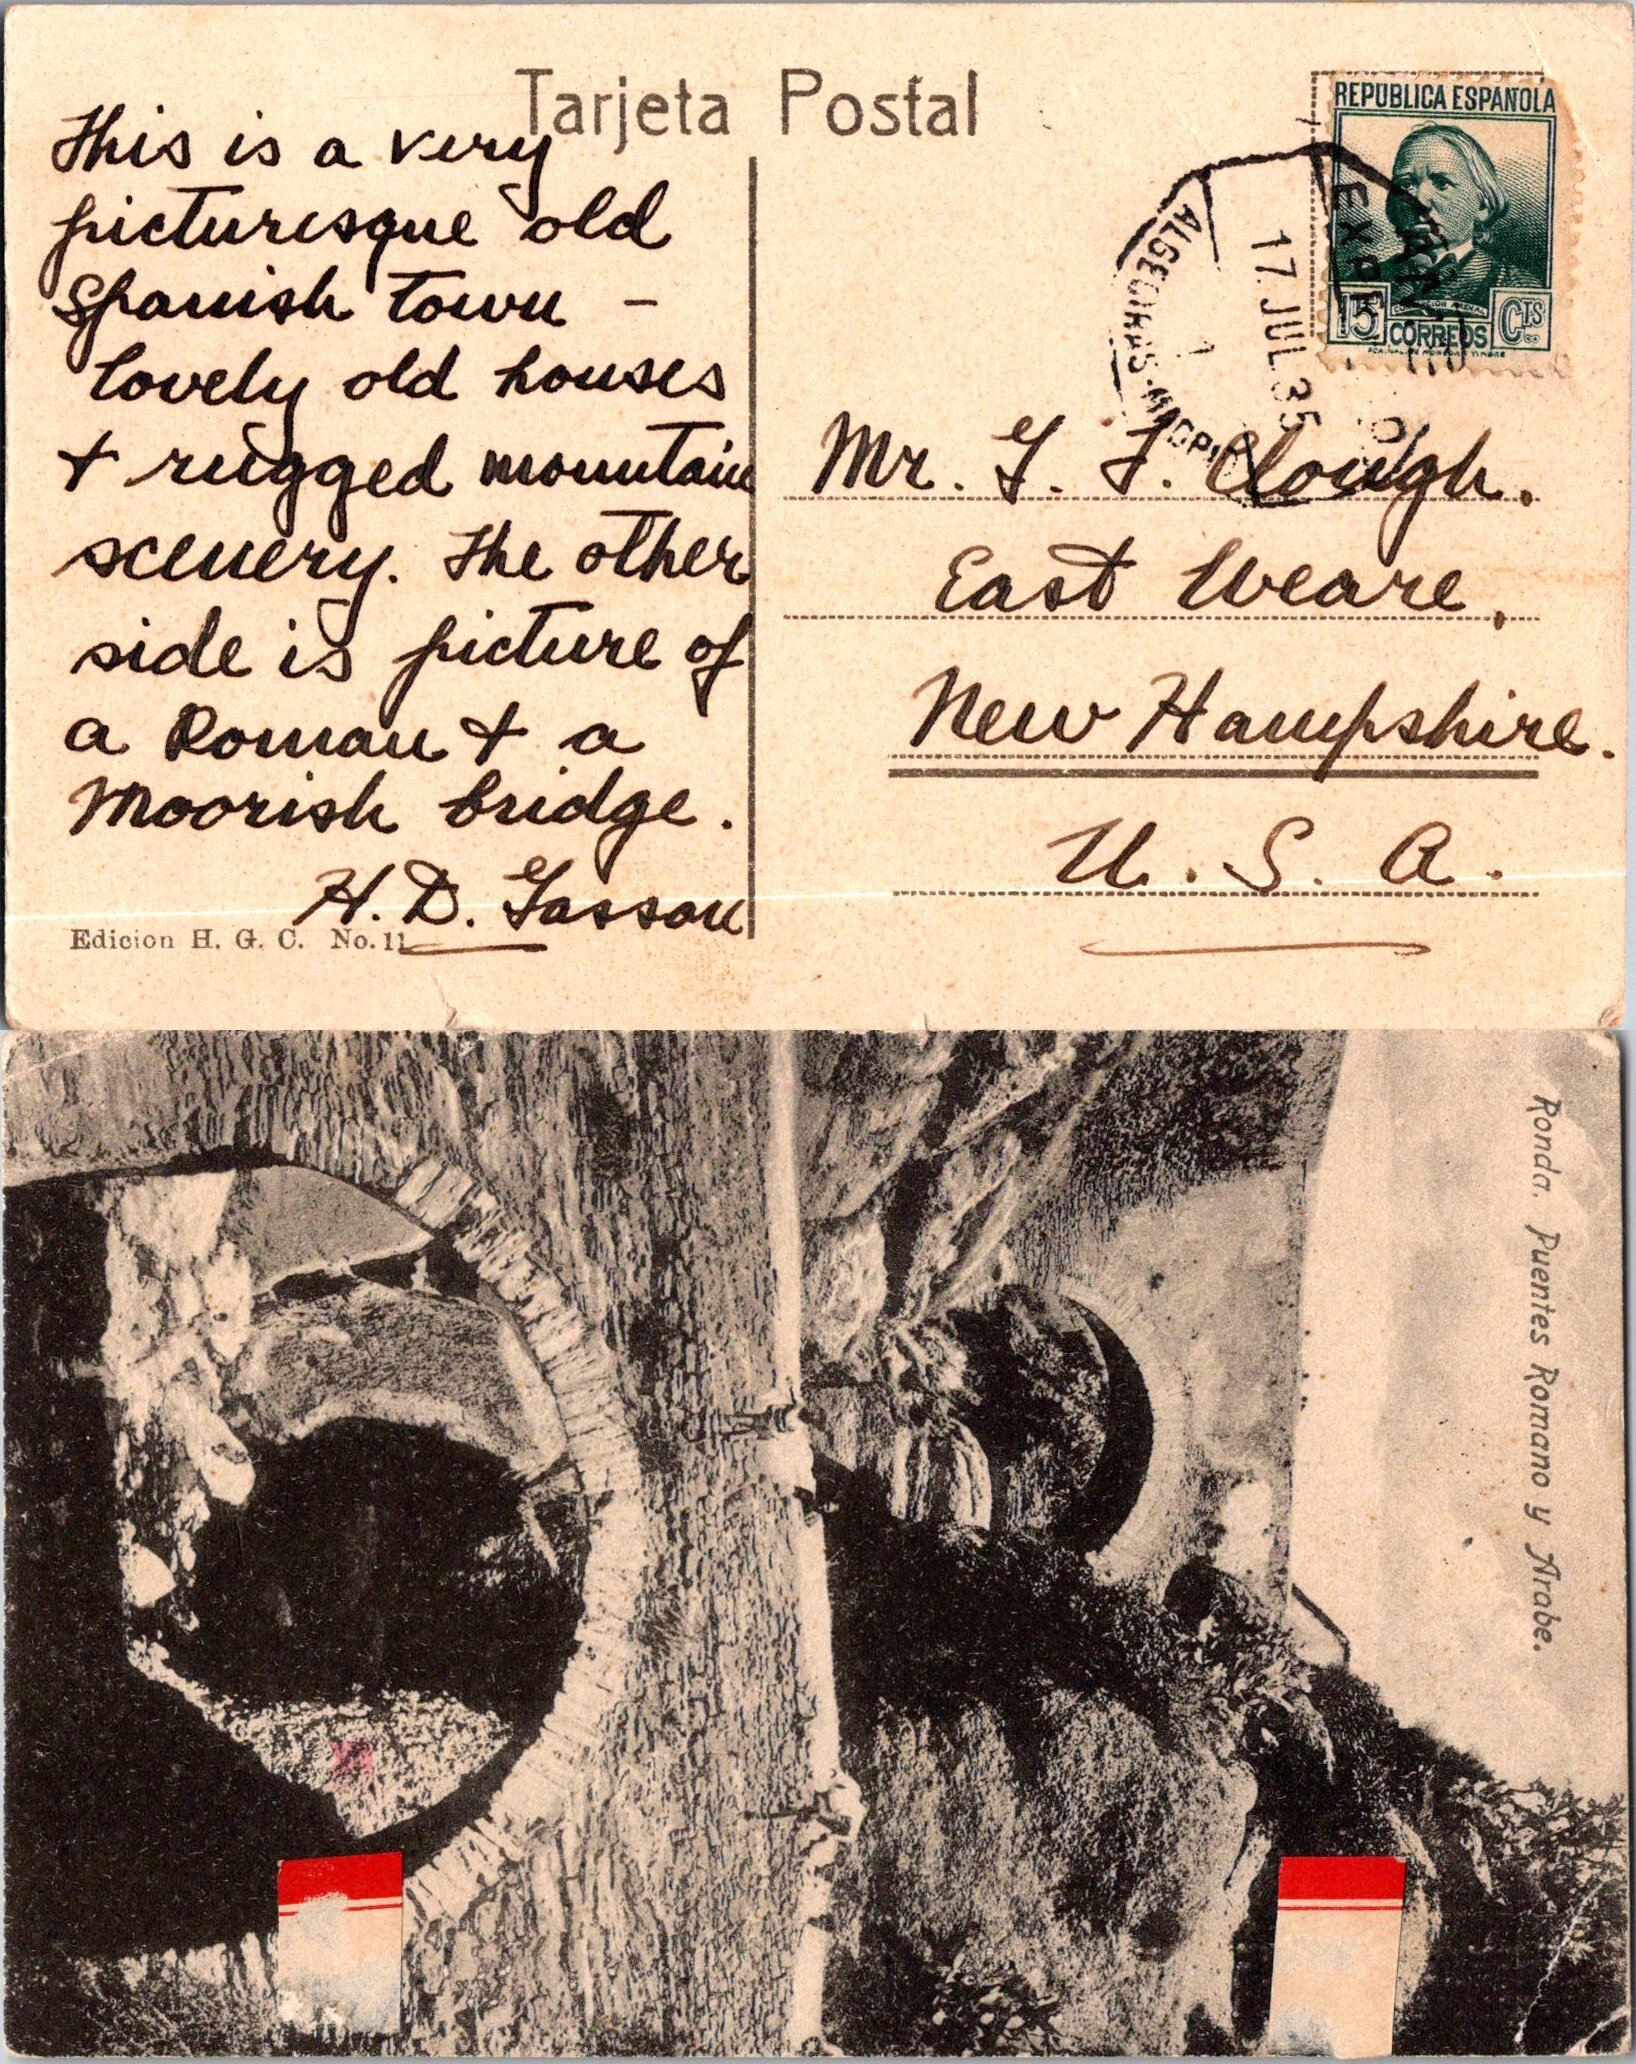 Tarjeta Postal
This is a very
picturesque old
Spanish town -
lovely old houses
+ rugged mountain
scenery. The other
side is picture of
a Roman + a
Moorish bridge.
H. D. Gasson
Edicion H. G. C. No. 11
REPUBLICA ESPAÑOLA
15 Cts
CORREOS
ALGECIRAS-MADRID
17 JUL 35
Mr. G. F. Clough.
East Weare,
New Hampshire.
U. S. A.
Ronda. Puentes Romano y Arabe.